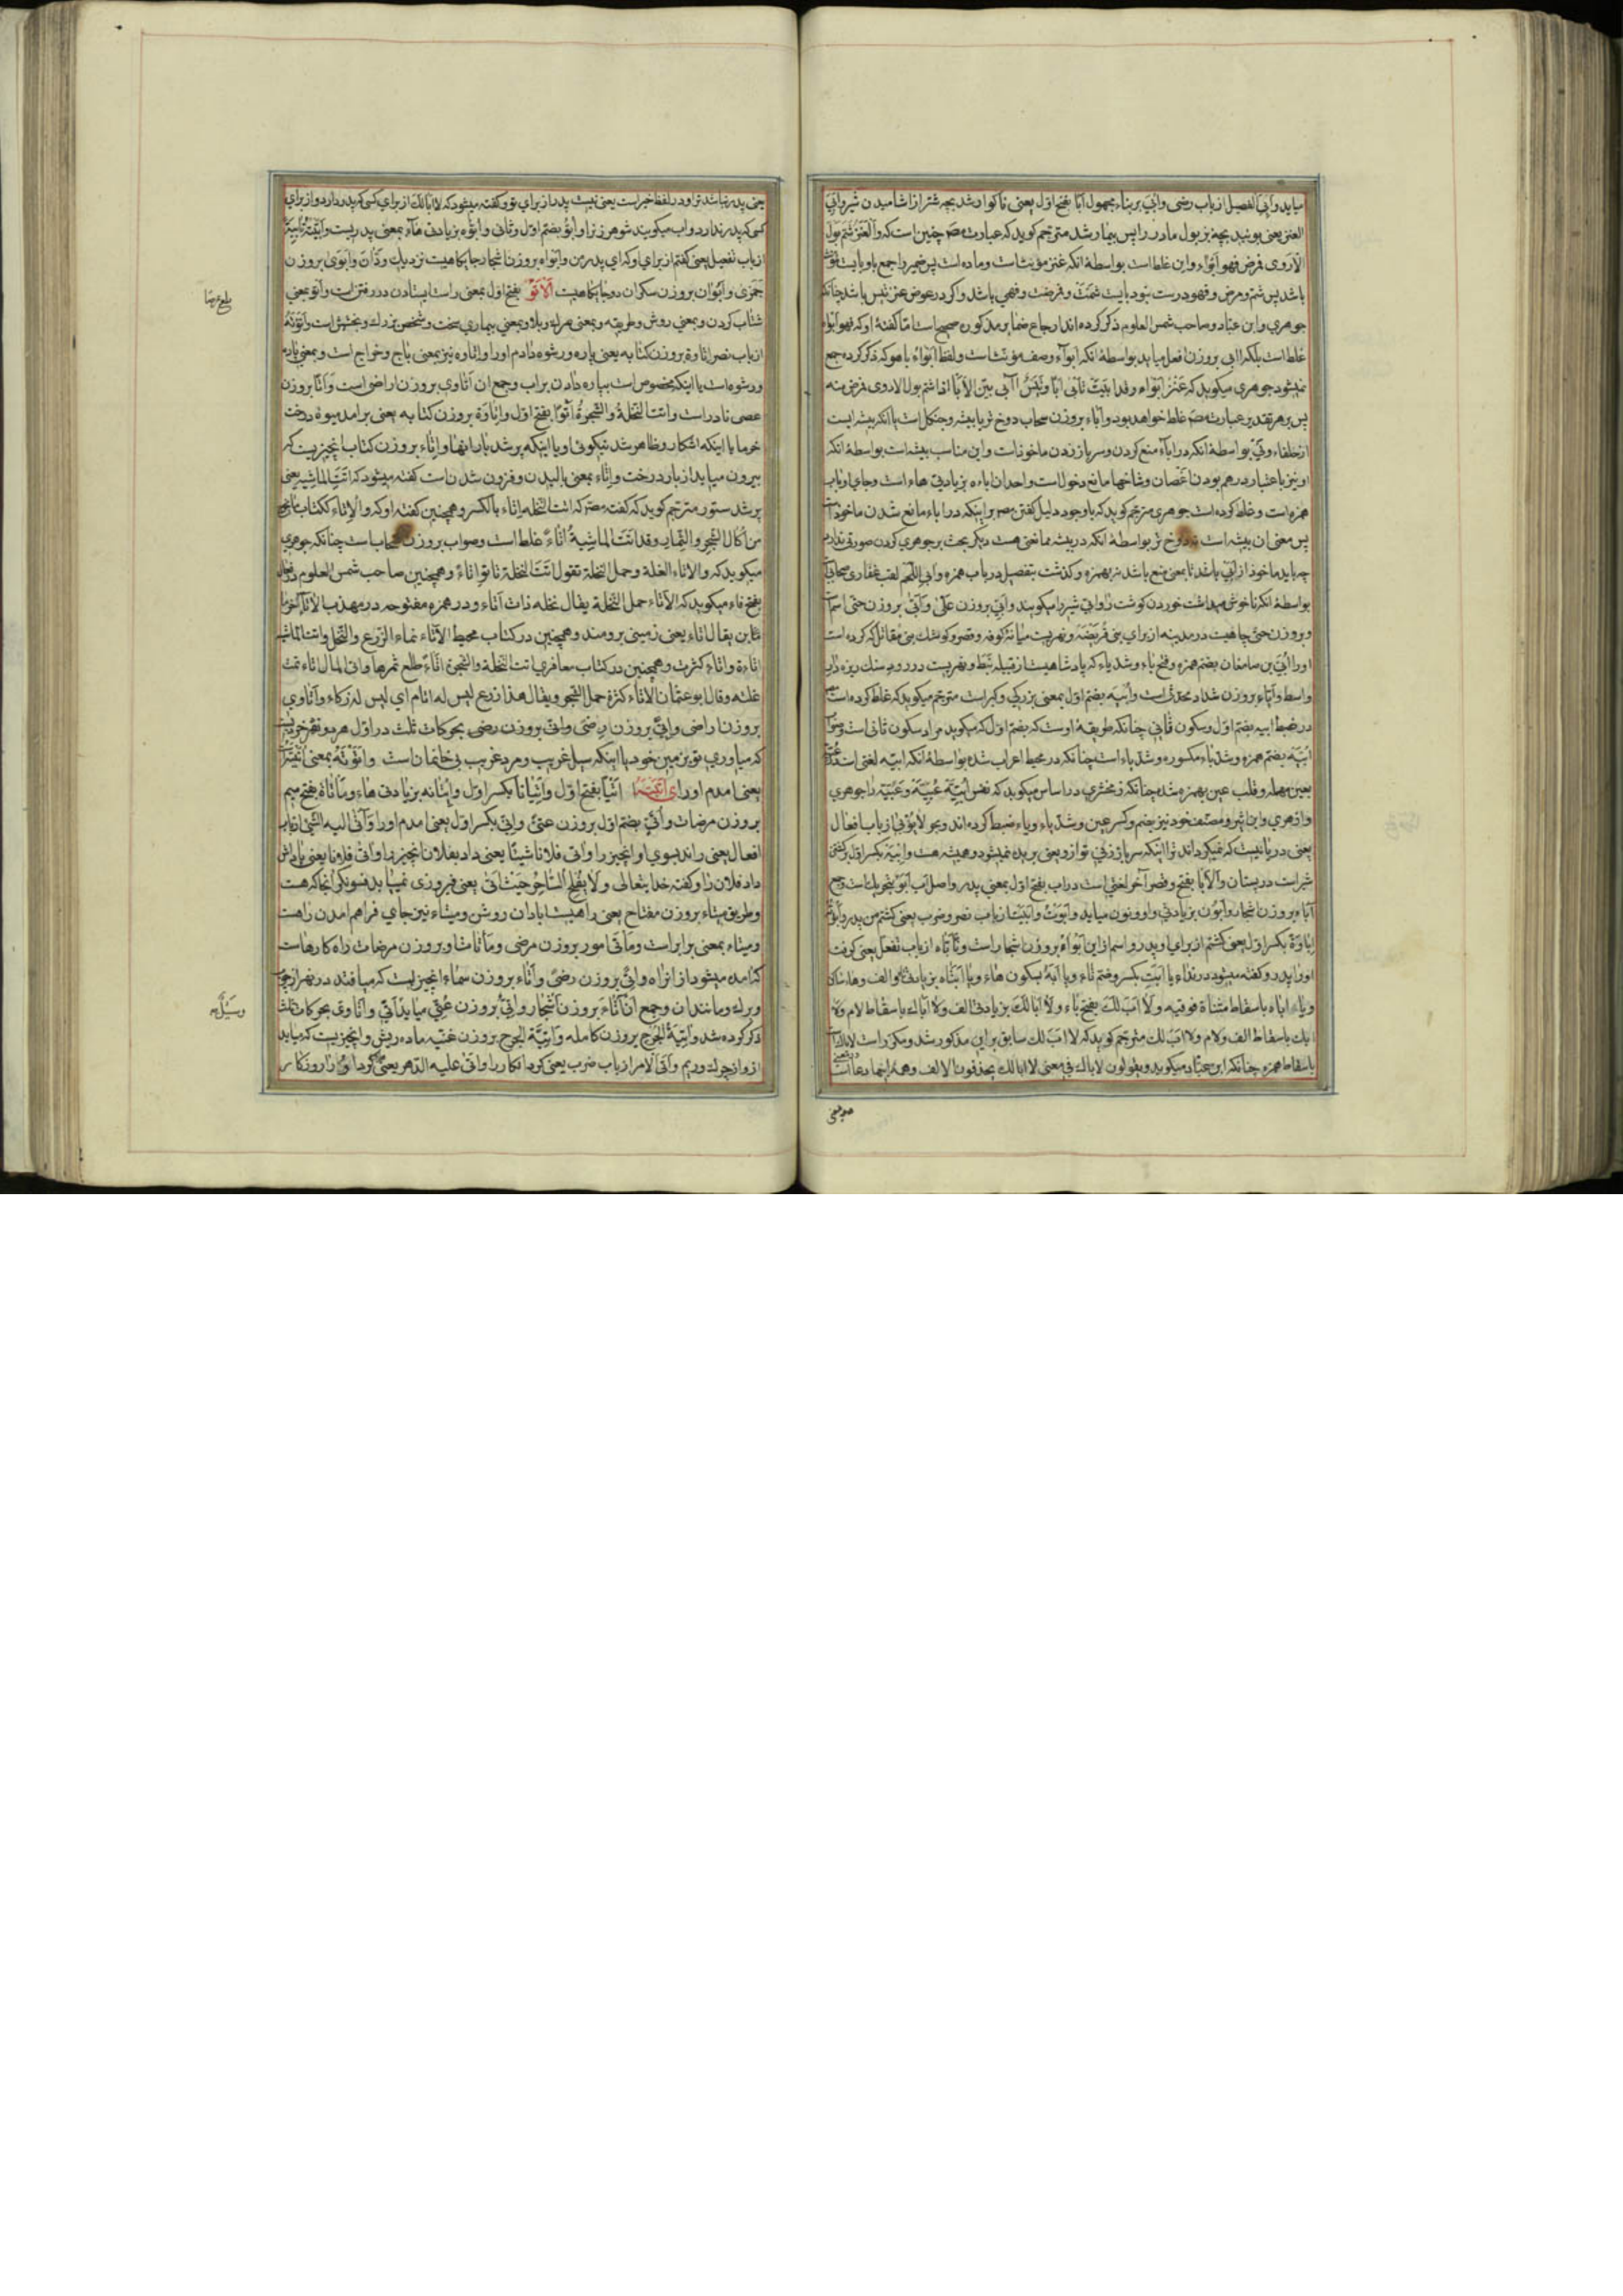 میاید وابی الفصیل از باب رضی وابی بر بناء مجهول ابا بفتح اول یعنی ناکوار شد بچه شتر از اشامیدن شیر وابی
العنز یعنی بوئید بچه بز بول مادر را پس بیمار شد مترجم کوید که عبارت مص چنین است که والعنز شم بول
الاروی فمرض فهو ابواء واین غلط است بواسطهٔ انکه عنز مؤنث است وماده است پس ضمیر راجع باو بایست مؤنث
باشد پس شم ومرض وفهو درست نبود بایست شمت ومرضت وفهی باشد واکر در عوض عنز تیس باشد چنانکه
جوهری وابن عباد وصاحب شمس العلوم ذکر کرده اند ارجاع ضمایر مذکوره صحیح است اما کفتهٔ او که فهو ابواء
غلط است بلکه ابی بروزن افعل میاید بواسطهٔ انکه ابواء وصف مؤنث است ولفظ ابواء با هو که ذکر کرده جمع
نمیشود جوهری میکوید که عنز ابواء وقد ابیت تابی ابا وتیس آبی بین الابا اذا شم بول الاروی فمرض منه
پس بر هر تقدیر عبارت مص غلط خواهد بود واباء بروزن سحاب دوخ تر یا بیشه وجنکل است یا انکه بیشه ایست
از حلفاء ونی بواسطهٔ انکه در اباء منع کردن وسر باز زدن ماخوذ است واین مناسب بیشه است بواسطهٔ انکه
او نیز باعتبار درهم بودن اغصان وشاخها مانع دخول است واحد ان اباءه بزیادتی هاء است وجای او باب
همزه است وغلط کرده است جوهری مترجم کوید که باوجود دلیل کفتن مص بر اینکه در اباء مانع شدن ماخوذ است
پس معنی ان بیشه است نه دوخ تر بواسطهٔ انکه در بیشه ممانعتی هست دیکر بحث بر جوهری کردن صورتی ندارد
چه باید ماخوذ از ابی باشد تا بمعنی منع باشد نه بهمزه وکذشت بتفصیل در باب همزه وابی اللحم لقب غفاری صحابی
بواسطهٔ انکه ناخوش میداشت خوردن کوشت را وابی شیر را میکویند وابی بروزن علی وابی بروزن حتی اسم است
وبروزن حتی چاهیست در مدینه از برای بنی قریضه ونهریست میانهٔ کوفه وقصر وکوشک بنی مقاتل که کرده است
اورا ابی بن صامغان بضم همزه وفتح باء وشد یاء که پادشاهیست از قبیله نبط ونهریست در رود سنک ریزه دار
واسط واباء بروزن شداد محدث است وابیه بضم اول بمعنی بزرکی وکبر است مترجم میکوید که غلط کرده است
در ضبط ابیه بضم اول وسکون ثانی چنانکه طریقهٔ اوست که بضم اول که میکوید مراد سکون ثانی است وصواب
ابیه بضم همزه وشد باء مکسوره وشد یاء است چنانکه در محیط اعراب شده بواسطهٔ انکه ابیه لغتی است در عبیه
بعین مهمله وقلب عین بهمزه شده چنانکه زمخشری در اساس میکوید که نفس ابیه عبیه وعبیه را جوهری
وازهری وابن اثیر ومصنف خود نیز بضم وکسر عین وشد باء ویاء ضبط کرده اند وبحر لا یؤبی از باب افعال
یعنی دریائیست که نمیکرداند ترا انکه سر باز زنی تو از او یعنی بریده نمیشود وهمیشه هست
شراست در پستان والابا بفتح وقصر آخر لغتی است در اب بفتح اول بمعنی پدر واصل اب ابو بتحریک است وجمع
آباء بروزن اشجار وابون بزیادتی واو ونون میاید وابوت وابیت از باب نصر وضرب یعنی کشتم من پدر وابوته
اباوة بکسر اول یعنی کشتم از برای او پدر واسم از این ابواء بروزن اشجار است وتأباه از باب تفعل یعنی کرفت
اورا پدر وکفته میشود در نداء یا ابت بکسر وضم تاء ویا ابه بسکون هاء ویا ابتاه بزیادتی الف وهاء ساکن
ویا اباه باسقاط مثناة فوقیه ولا اب لک بفتح باء ولا ابا لک بزیادتی الف ولا اباک باسقاط لام ولا
ابک باسقاط الف ولام ولا اب لک مترجم کوید که لا اب لک سابق بر این مذکور شد ومکرر است لاباک
باسقاط همزه چنانکه ابن عباد میکوید ویقولون لاباک فی معنی لا ابالک یحذفون الالف وهمه اینها دعا است
یعنی پدر نباشد ترا ودر لفظ خبر است یعنی نیست پدر از برای تو وکفته میشود که لا ابالک از برای کسی که پدر دارد واز برای
کسی که پدر ندارد واب میکویند شوهر زن را وابو بضم اول وثانی وابوه بزیادتی هاء بمعنی پدریست وابیته تابیة
از باب تفعیل یعنی کفتم از برای او که ای پدر من وابواه بروزن اشجار جایکاهیست نزدیک ودان وابوی بروزن
جمزی وابوان بروزن سکران دو جایکاهیست الاتو بفتح اول بمعنی راست ایستادن در رفتن است واتو بمعنی
شتاب کردن وبمعنی روش وطریقه وبمعنی مرک وبلاء وبمعنی بیماری سخت وشخص بزرک وبخشش است واتوته
از باب نصر اتاوة بروزن کتابه یعنی پاره ورشوه دادم اورا واتاوه نیز بمعنی باج وخراج است وبمعنی پاره
ورشوه است یا اینکه مخصوص است بپاره دادن بر اب وجمع ان اتاوی بروزن اراضی است واتا بروزن
عصی نادر است واتت النخلة والشجرة اتوا بفتح اول واتاوة بروزن کتابه یعنی برامد میوهٔ درخت
خرما یا اینکه اشکار وظاهر شد نیکوئی او یا اینکه پر شد بار انها واتاء بروزن کتاب انچیزیست که
بیرون میاید از بار درخت واتاء بمعنی بالیدن وفزون شدن است کفته میشود که اتت الماشیه یعنی
پر شد ستور مترجم کوید که کفته مص که اتت النخله اتاء بالکسر وهمچنین کفتهٔ او که والاتاء ککتاب ما یخرج
من اکال الشجر والثمار وقد اتت الماشیة اتاء غلط است وصواب بروزن سحاب است چنانکه جوهری
میکوید که والاتاء الغلة وحمل النخلة تقول اتت النخلة تاتو اتاء وهمچنین صاحب شمس العلوم در فعال
بفتح فاء میکوید که الاتاء حمل النخلة یقال نخله ذات اتاء ودر همزه مفتوحه در مهذب الاتاء
یقال اتاء یعنی زمینی برومند وهمچنین در کتاب محیط الاتاء نماء الزرع والنخل واتت الماشیه
اتاءة واتاء کثرت وهمچنین در کتاب معافری اتت النخلة والشجرة اتاء طلع ثمرها واتی المال اتاء نمت
غلته وقال ابو عثمان الاتاء کثرة حمل الشجر ویقال هذا زرع لیس له اتاء ای لیس له زکاء واتاوی
بروزن اراضی واتی بروزن رضی واتی بروزن رضی بحرکات ثلث در اول هر دو
که میاوری تو بزمین خود یا اینکه سیل غریب ومرد غریب بی خانمان است واتوته بمعنی اتیته
یعنی امدم اورا ی اتیته اتیا بفتح اول واتیانا بکسر اول واتیانه بزیادتی هاء وماتاة بفتح میم
بروزن مرضات واتی بضم اول بروزن عتی واتی بکسر اول یعنی امدم اورا وآتی الیه الشیء از باب
افعال یعنی راند بسوی او انچیز را واتی فلانا شیئا یعنی داد بفلان انچیز را واتی فلانا یعنی پاداش
داد فلان را وکفته خدایتعالی ولا یفلح الساحر حیث اتی یعنی فیروزی نمییابد فسونکر انجا که هست
وطریق میتاء بروزن مفتاح یعنی راهیست ابادان روشن ومیتاء نیز جای فراهم امدن راهست
ومیتاء بمعنی برابر است وماتی امور بروزن مرمی وماتاتها بروزن مرضات راه کارهاست
که امده میشود از انراه واتی بروزن رضی واتاء بروزن سماء انچیزیست که میافتد در نهر از چوب
وبرک ومانند ان وجمع ان آتاء بروزن اشجار واتی بروزن عتی میاید واتی واتاوی بحرکات ثلث
ذکر کرده شد واتیة الجرح بروزن کامله واتیة الجرح بروزن غنیه ماده ریش وانچیزیست که میاید
از او از چرک وریم واتی الامر از باب ضرب یعنی کرد انکار را واتی علیه الدهر یعنی کرد او را روزکار